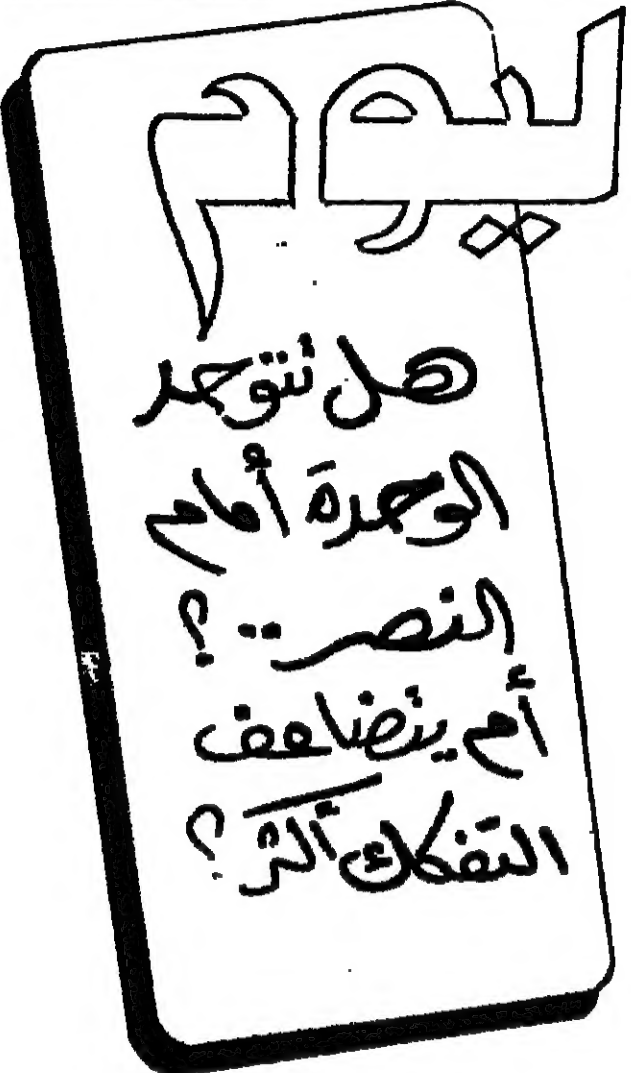 يوم
هل تتوحد
الوحدة أمام
النصر .. ؟
أم يتضاعف
التفكك أكثر ؟